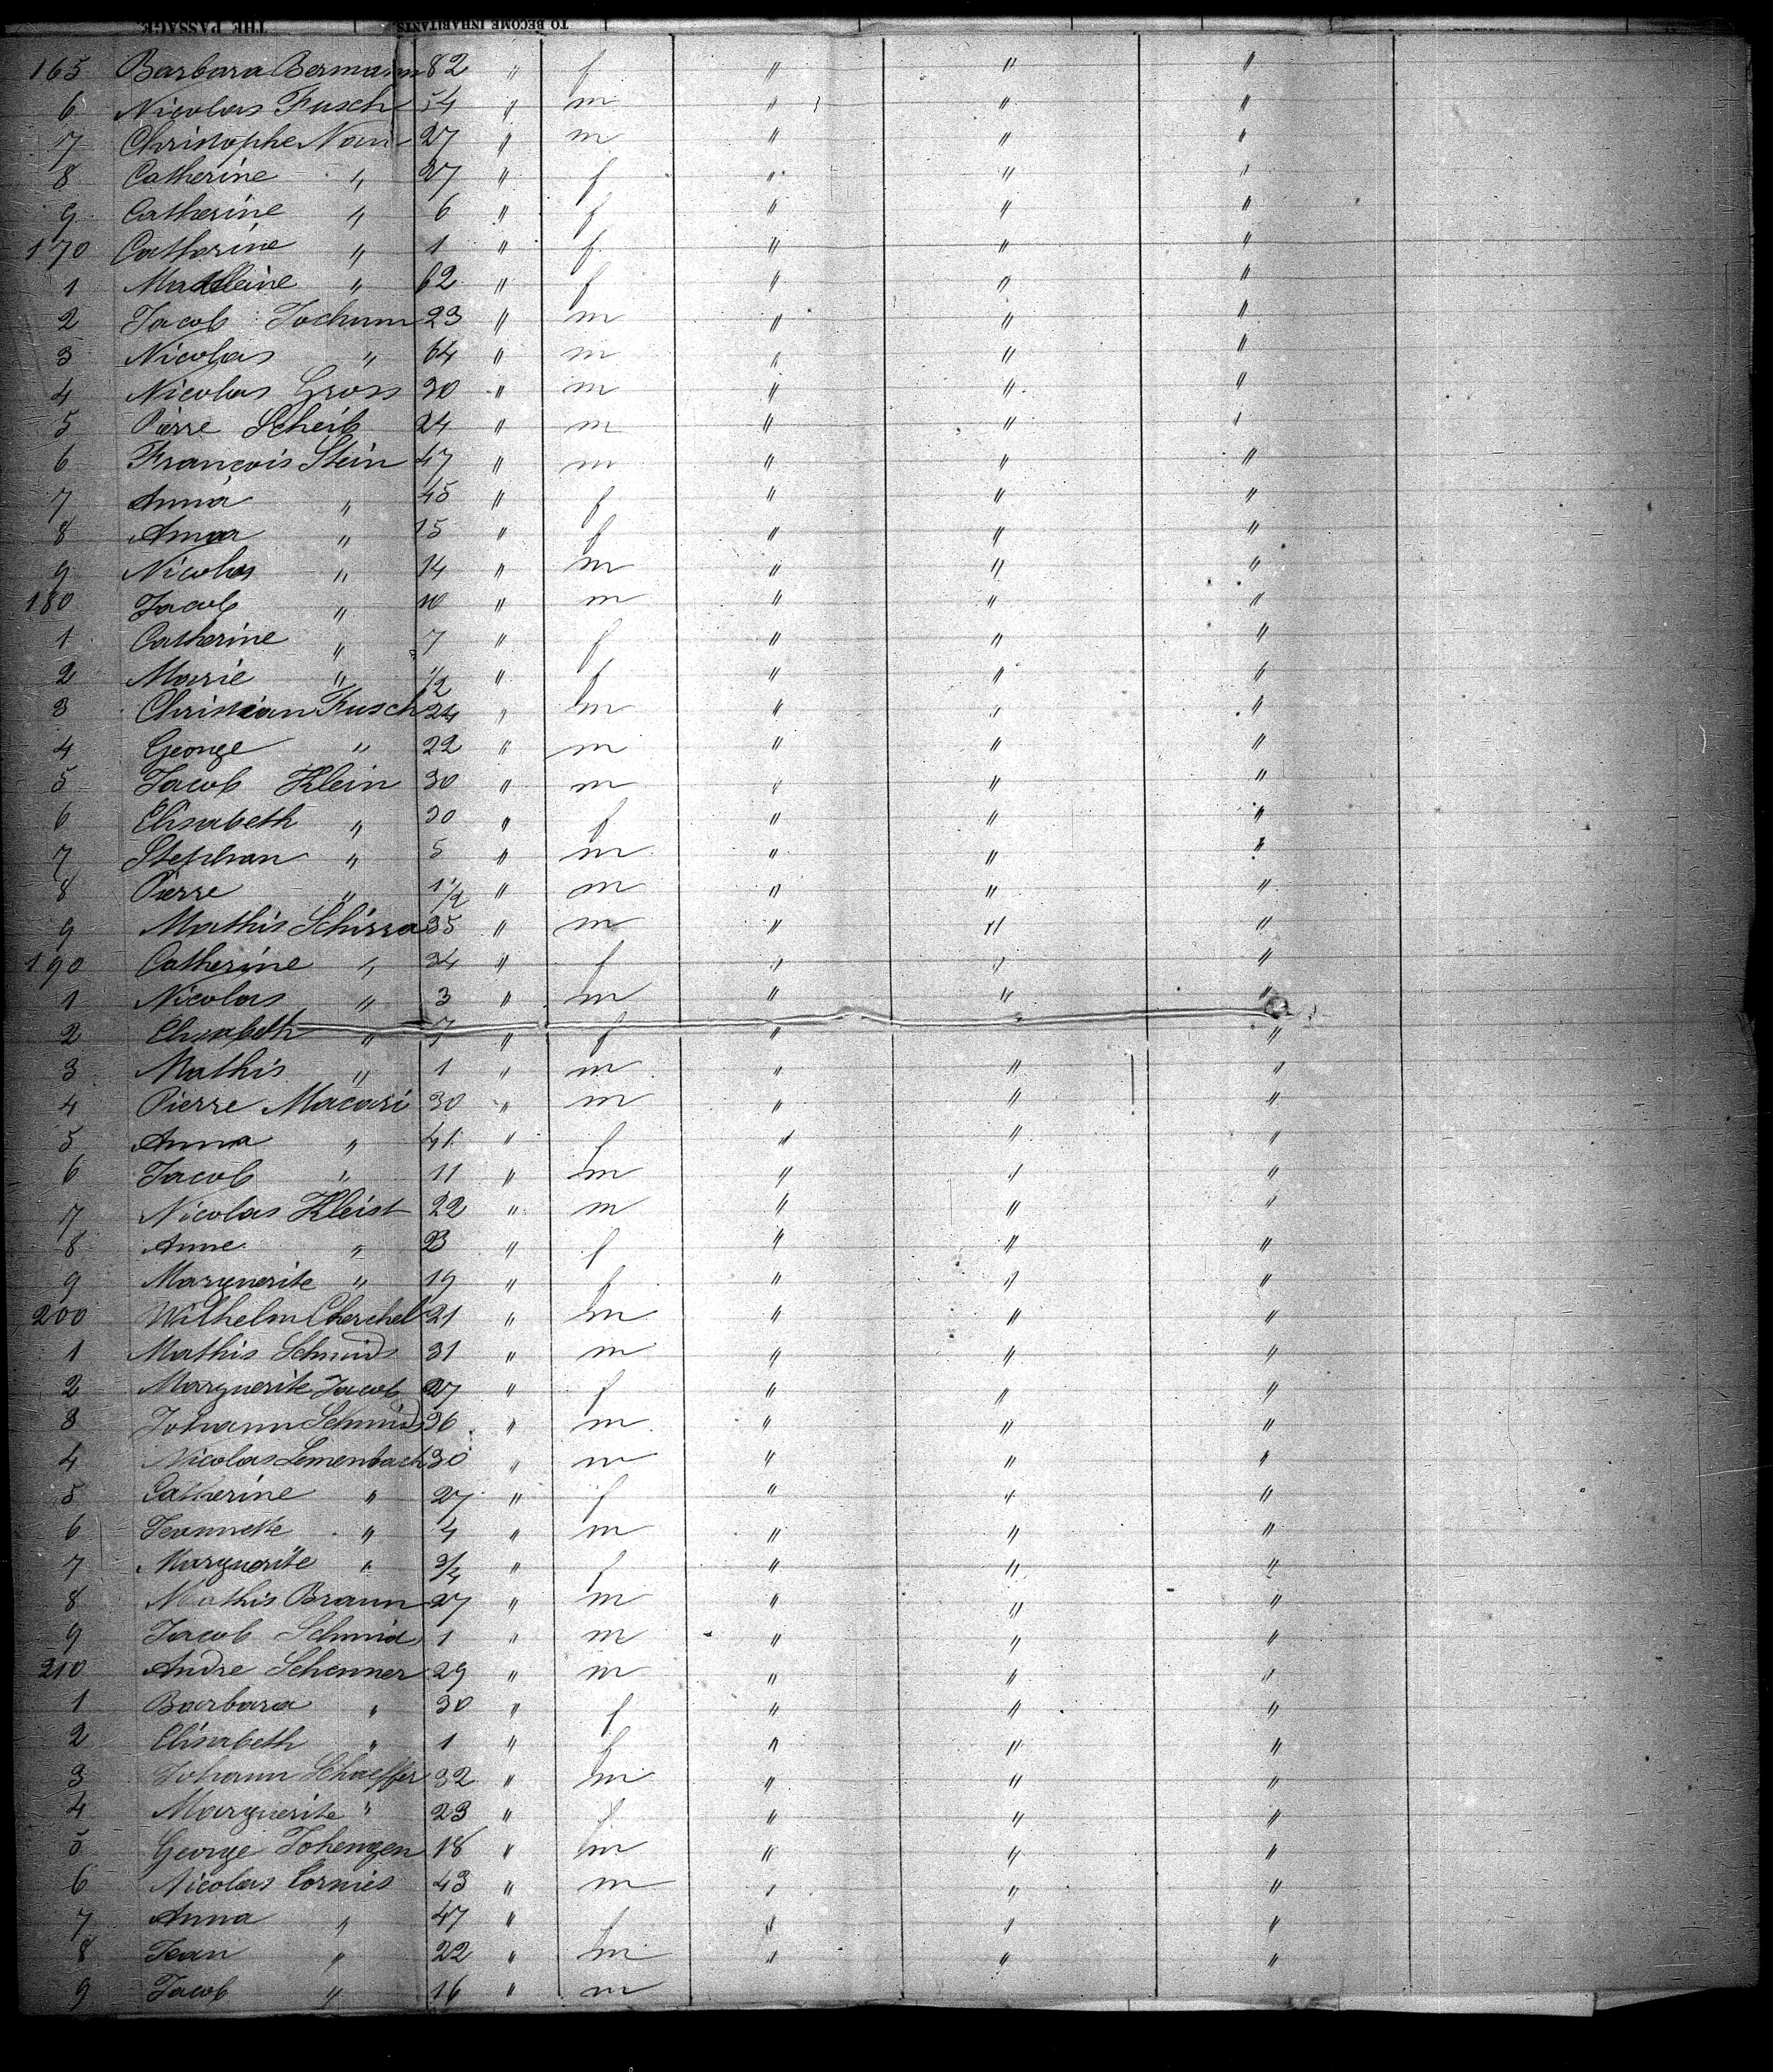 THE PASSAGE. TO BECOME INHABITANTS.
165 Barbara Bermann 82 " f " " "
6 Nicolas Fusch 54 " m " " "
7 Christophe Nau 27 " m " " "
8 Catherine " 27 " f " " "
9 Catherine " 6 " f " " "
170 Catherine " 1 " f " " "
1 Madeleine " 62 " f " " "
2 Jacob Jochum 23 " m " " "
3 Nicolas " 64 " m " " "
4 Nicolas Gross 30 " m " " "
5 Pierre Scheib 24 " m " " "
6 François Stein 47 " m " " "
7 Anna " 45 " f " " "
8 Anna " 15 " f " " "
9 Nicolas " 14 " m " " "
180 Jacob " 10 " m " " "
1 Catherine " 7 " f " " "
2 Marie " 1/2 " f " " "
3 Christian Fusch 24 " m " " "
4 George " 22 " m " " "
5 Jacob Klein 30 " m " " "
6 Elisabeth " 30 " f " " "
7 Stephan " 5 " m " " "
8 Pierre " 1 1/2 " m " " "
9 Mathis Schirra 35 " m " " "
190 Catherine " 34 " f " " "
1 Nicolas " 3 " m " " "
2 Elisabeth " " f " "
3 Mathis " 1 " m " " "
4 Pierre Macari 30 " m " " "
5 Anna " 41 " f " " "
6 Jacob " 11 " m " " "
7 Nicolas Kleist 22 " m " " "
8 Anne " 23 " f " " "
9 Marguerite " 19 " f " " "
200 Wilhelm Cherchel 21 " m " " "
1 Mathis Schmid 31 " m " " "
2 Marguerite Jacob 27 " f " " "
3 Johann Schmid 36 " m " " "
4 Nicolas Leinenbach 30 " m " " "
5 Catherine " 27 " f " " "
6 Jeannette " 4 " m " " "
7 Marguerite " 3/4 " f " " "
8 Mathis Braun 27 " m " " "
9 Jacob Schmid 1 " m " " "
210 Andre Schenner 29 " m " " "
1 Barbara " 30 " f " " "
2 Elisabeth " 1 " f " " "
3 Johann Schaeffer 32 " m " " "
4 Marguerite " 23 " f " " "
5 George Johengen 18 " m " " "
6 Nicolas Cornies 43 " m " " "
7 Anna " 47 " f " " "
8 Jean " 22 " m " " "
9 Jacob " 16 " m